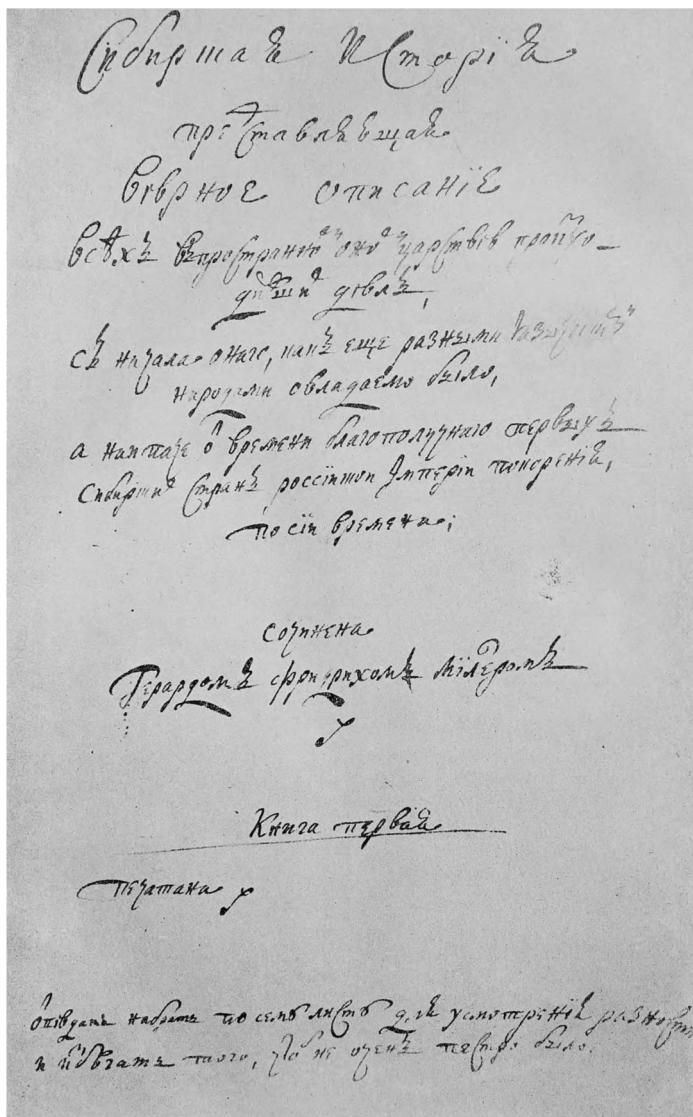 Сибирская Исторїя
представляющая
вѣрное описанїе
всѣхъ въ пространномъ ономъ царствѣ происхо-
дившихъ дѣлъ,
съ начала онаго, какъ еще разными языческими
народами овладаемо было,
а наипаче от времени благополучнаго первыхъ
Сибирскихъ странъ россїискои Імперїи покоренїя,
по сїи времена;
сочинена
Герардомъ фридрихомъ Мїлеромъ
Книга первая
печатана
набрать по семь листъ для усмотренїя разности
и того, чтоб не оченъ пестро было.